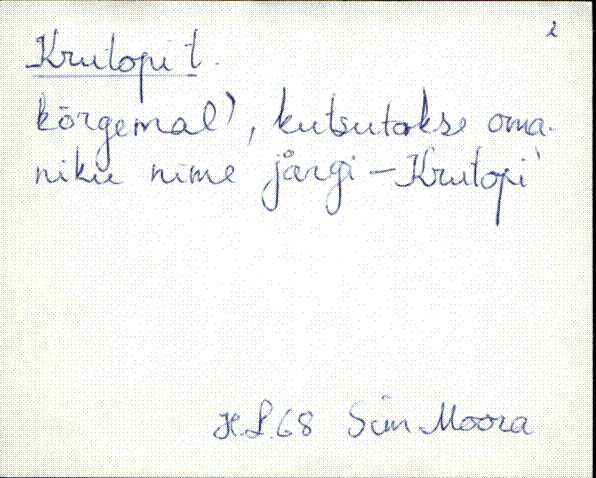 2
Krutopi t.
kõrgemal), kutsutakse oma-
niku nime järgi – Krutopi
H.L.68 Siim Moora